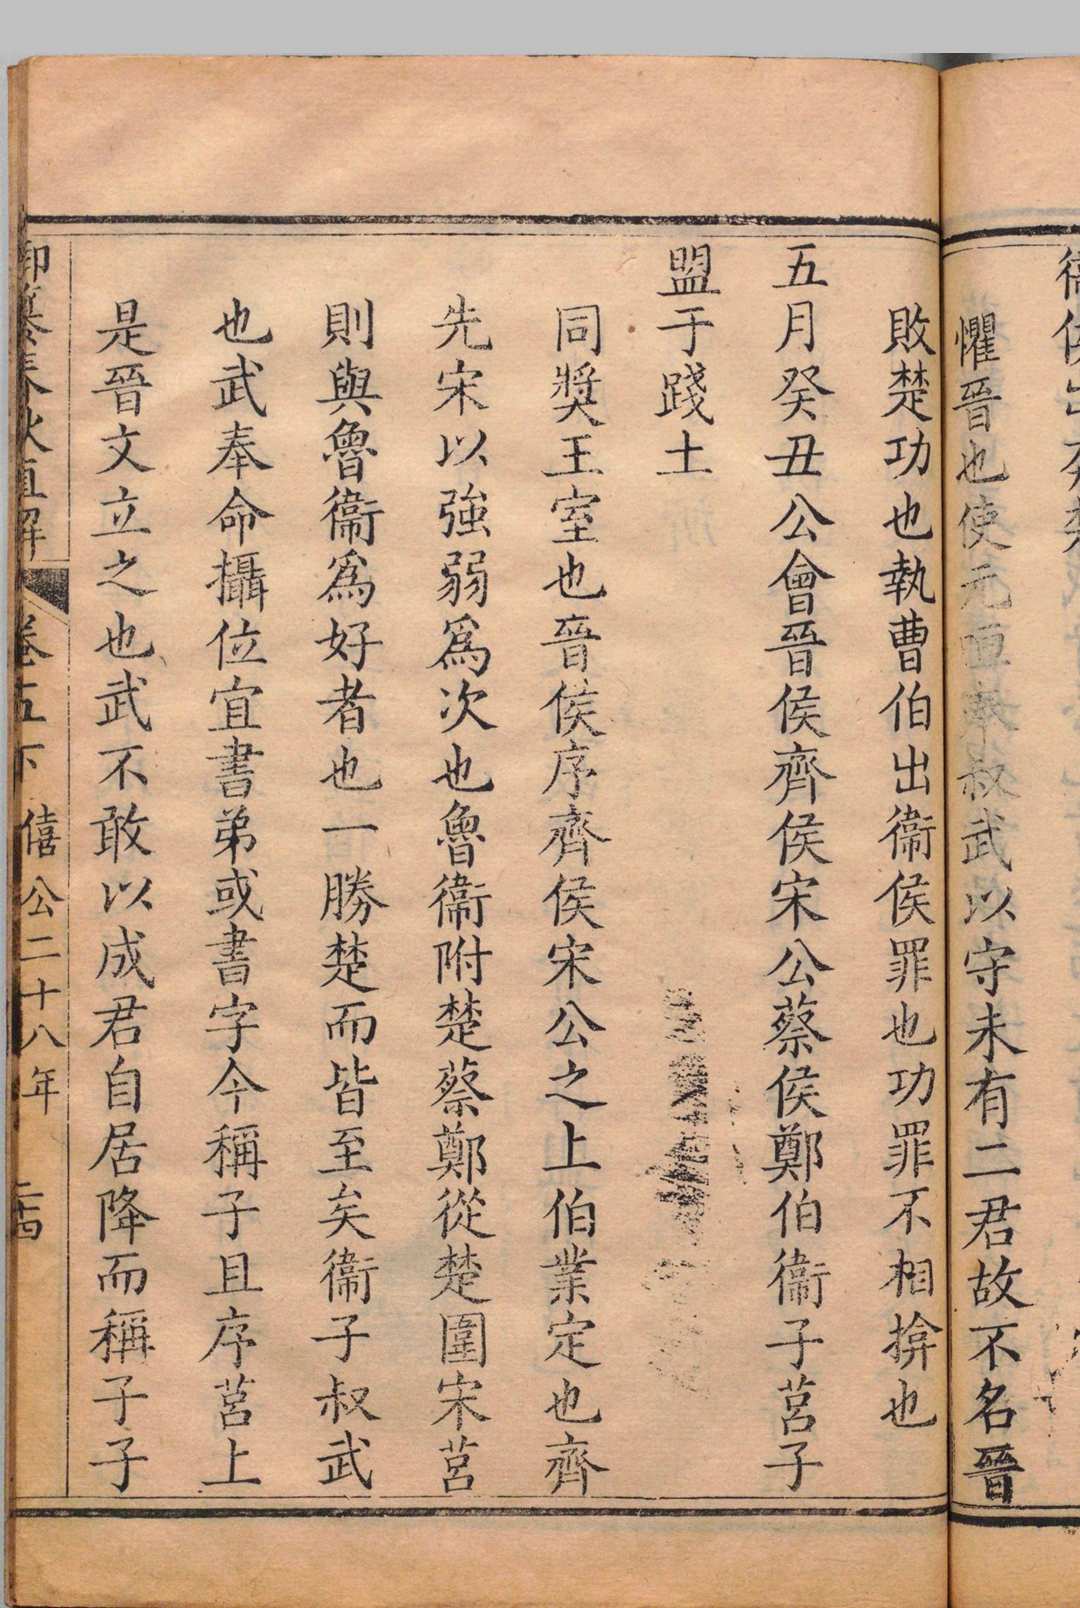 懼晉也使元咺奉叔武以守未有二君故不名晉
敗楚功也執曹伯出衞侯罪也功罪不相揜也
五月癸丑公會晉侯齊侯宋公蔡侯鄭伯衞子莒子
盟于踐土
同獎王室也晉侯序齊侯宋公之上伯業定也齊
先宋以強弱爲次也魯衞附楚蔡鄭從楚圍宋莒
則與魯衞爲好者也一勝楚而皆至矣衞子叔武
也武奉命攝位宜書弟或書字今稱子且序莒上
是晉文立之也武不敢以成君自居降而稱子子
御纂春秋直解 卷五下 僖公二十八年 二十四